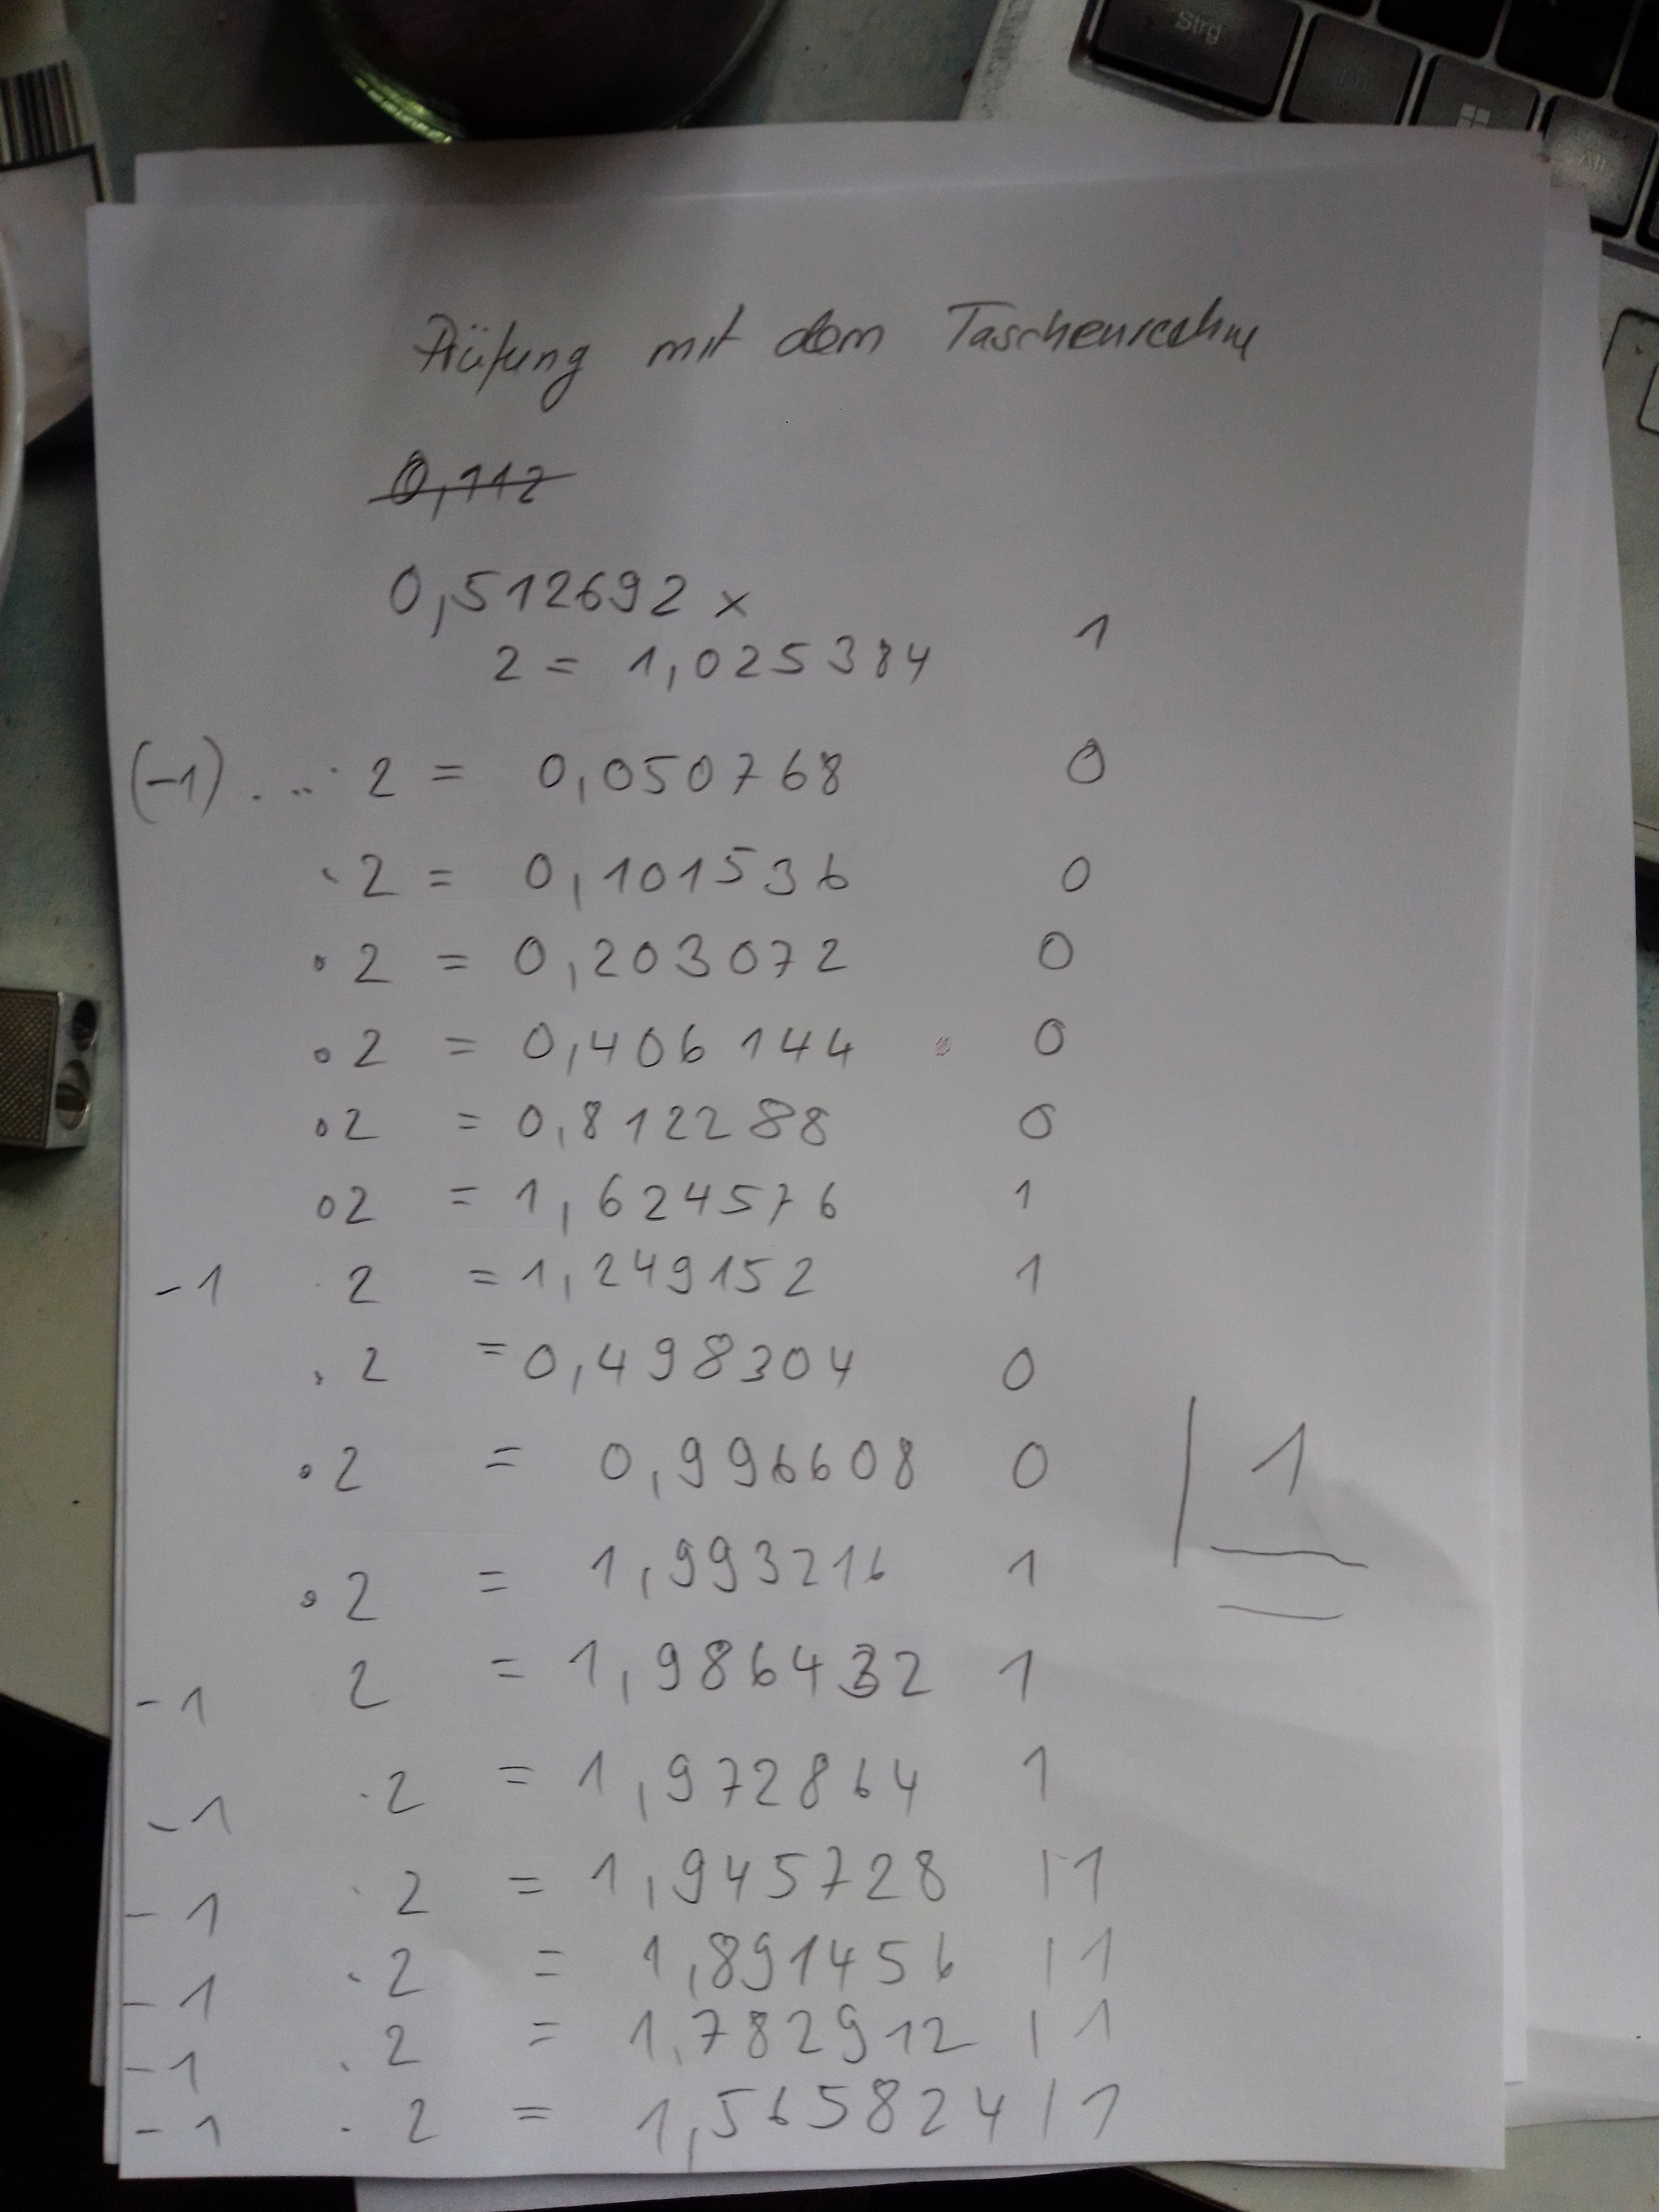 Strg
Alt
Prüfung mit dem Taschenrechne
0,112
0,512692 x
2 = 1,025384 1
(-1) . ... · 2 = 0,050768 0
· 2 = 0,101536 0
· 2 = 0,203072 0
· 2 = 0,406144 0
· 2 = 0,812288 0
· 2 = 1,624576 1
-1 · 2 = 1,249152 1
· 2 = 0,498304 0
· 2 = 0,996608 0 | 1
· 2 = 1,993216 1
-1 2 = 1,986432 1
-1 · 2 = 1,972864 1
-1 · 2 = 1,945728 | 1
-1 · 2 = 1,891456 | 1
-1 · 2 = 1,782912 | 1
-1 · 2 = 1,565824 | 1